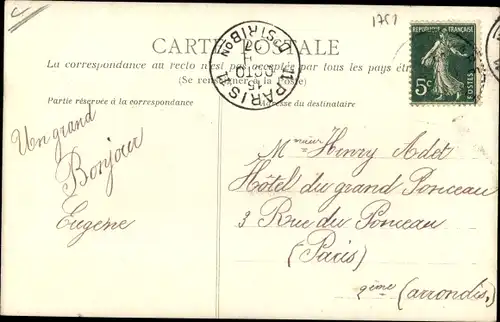 1751
RÉPUBLIQUE FRANÇAISE
5c
POSTES
PARIS
DISTRIBON
15
OCTO
CARTE POSTALE
La correspondance au recto n'est pas acceptée par tous les pays
(Se renseigner à la Poste)
Partie réservée à la correspondance
Adresse du destinataire
Un grand
Bonjour
Eugene
Mmsieur Henry Adet
Hôtel du grand Ponceau
3 Rue du Ponceau
(Paris)
2ème (arrondis.)